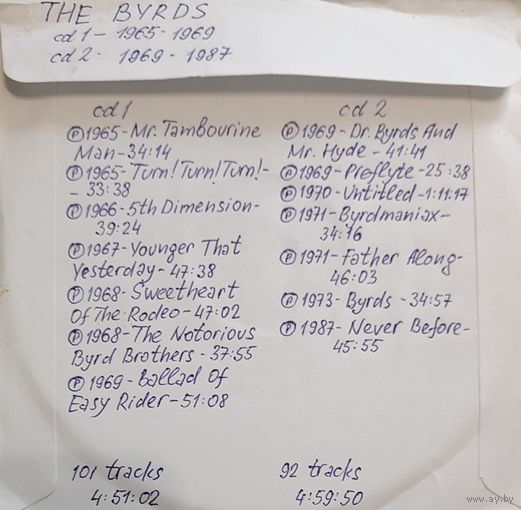 THE BYRDS
cd 1 - 1965-1969
cd 2 - 1969-1987
cd 1
Ⓟ1965-Mr. Tambourine
Man-34:14
Ⓟ1965-Turn! Turn! Turn!-
-33:38
Ⓟ1966-5th Dimension-
39:24
Ⓟ1967-Younger That
Yesterday-47:38
Ⓟ1968-Sweetheart
Of The Rodeo-47:02
Ⓟ1968-The Notorious
Byrd Brothers-37:55
Ⓟ1969-Ballad Of
Easy Rider-51:08
101 tracks
4:51:02
cd 2
Ⓟ1969-Dr. Byrds And
Mr. Hyde-41:41
Ⓟ1969-Preflyte-25:38
Ⓟ1970-Untitled-1:11:17
Ⓟ1971-Byrdmaniax-
34:16
Ⓟ1971-Father Along-
46:03
Ⓟ1973-Byrds-34:57
Ⓟ1987-Never Before-
45:55
92 tracks
4:59:50
www.ay.by